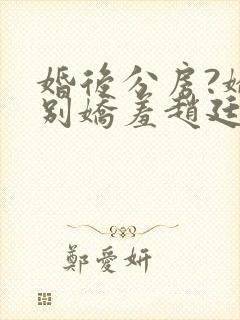 婚後分房?
別嬌羞趙廷
鄭愛妍